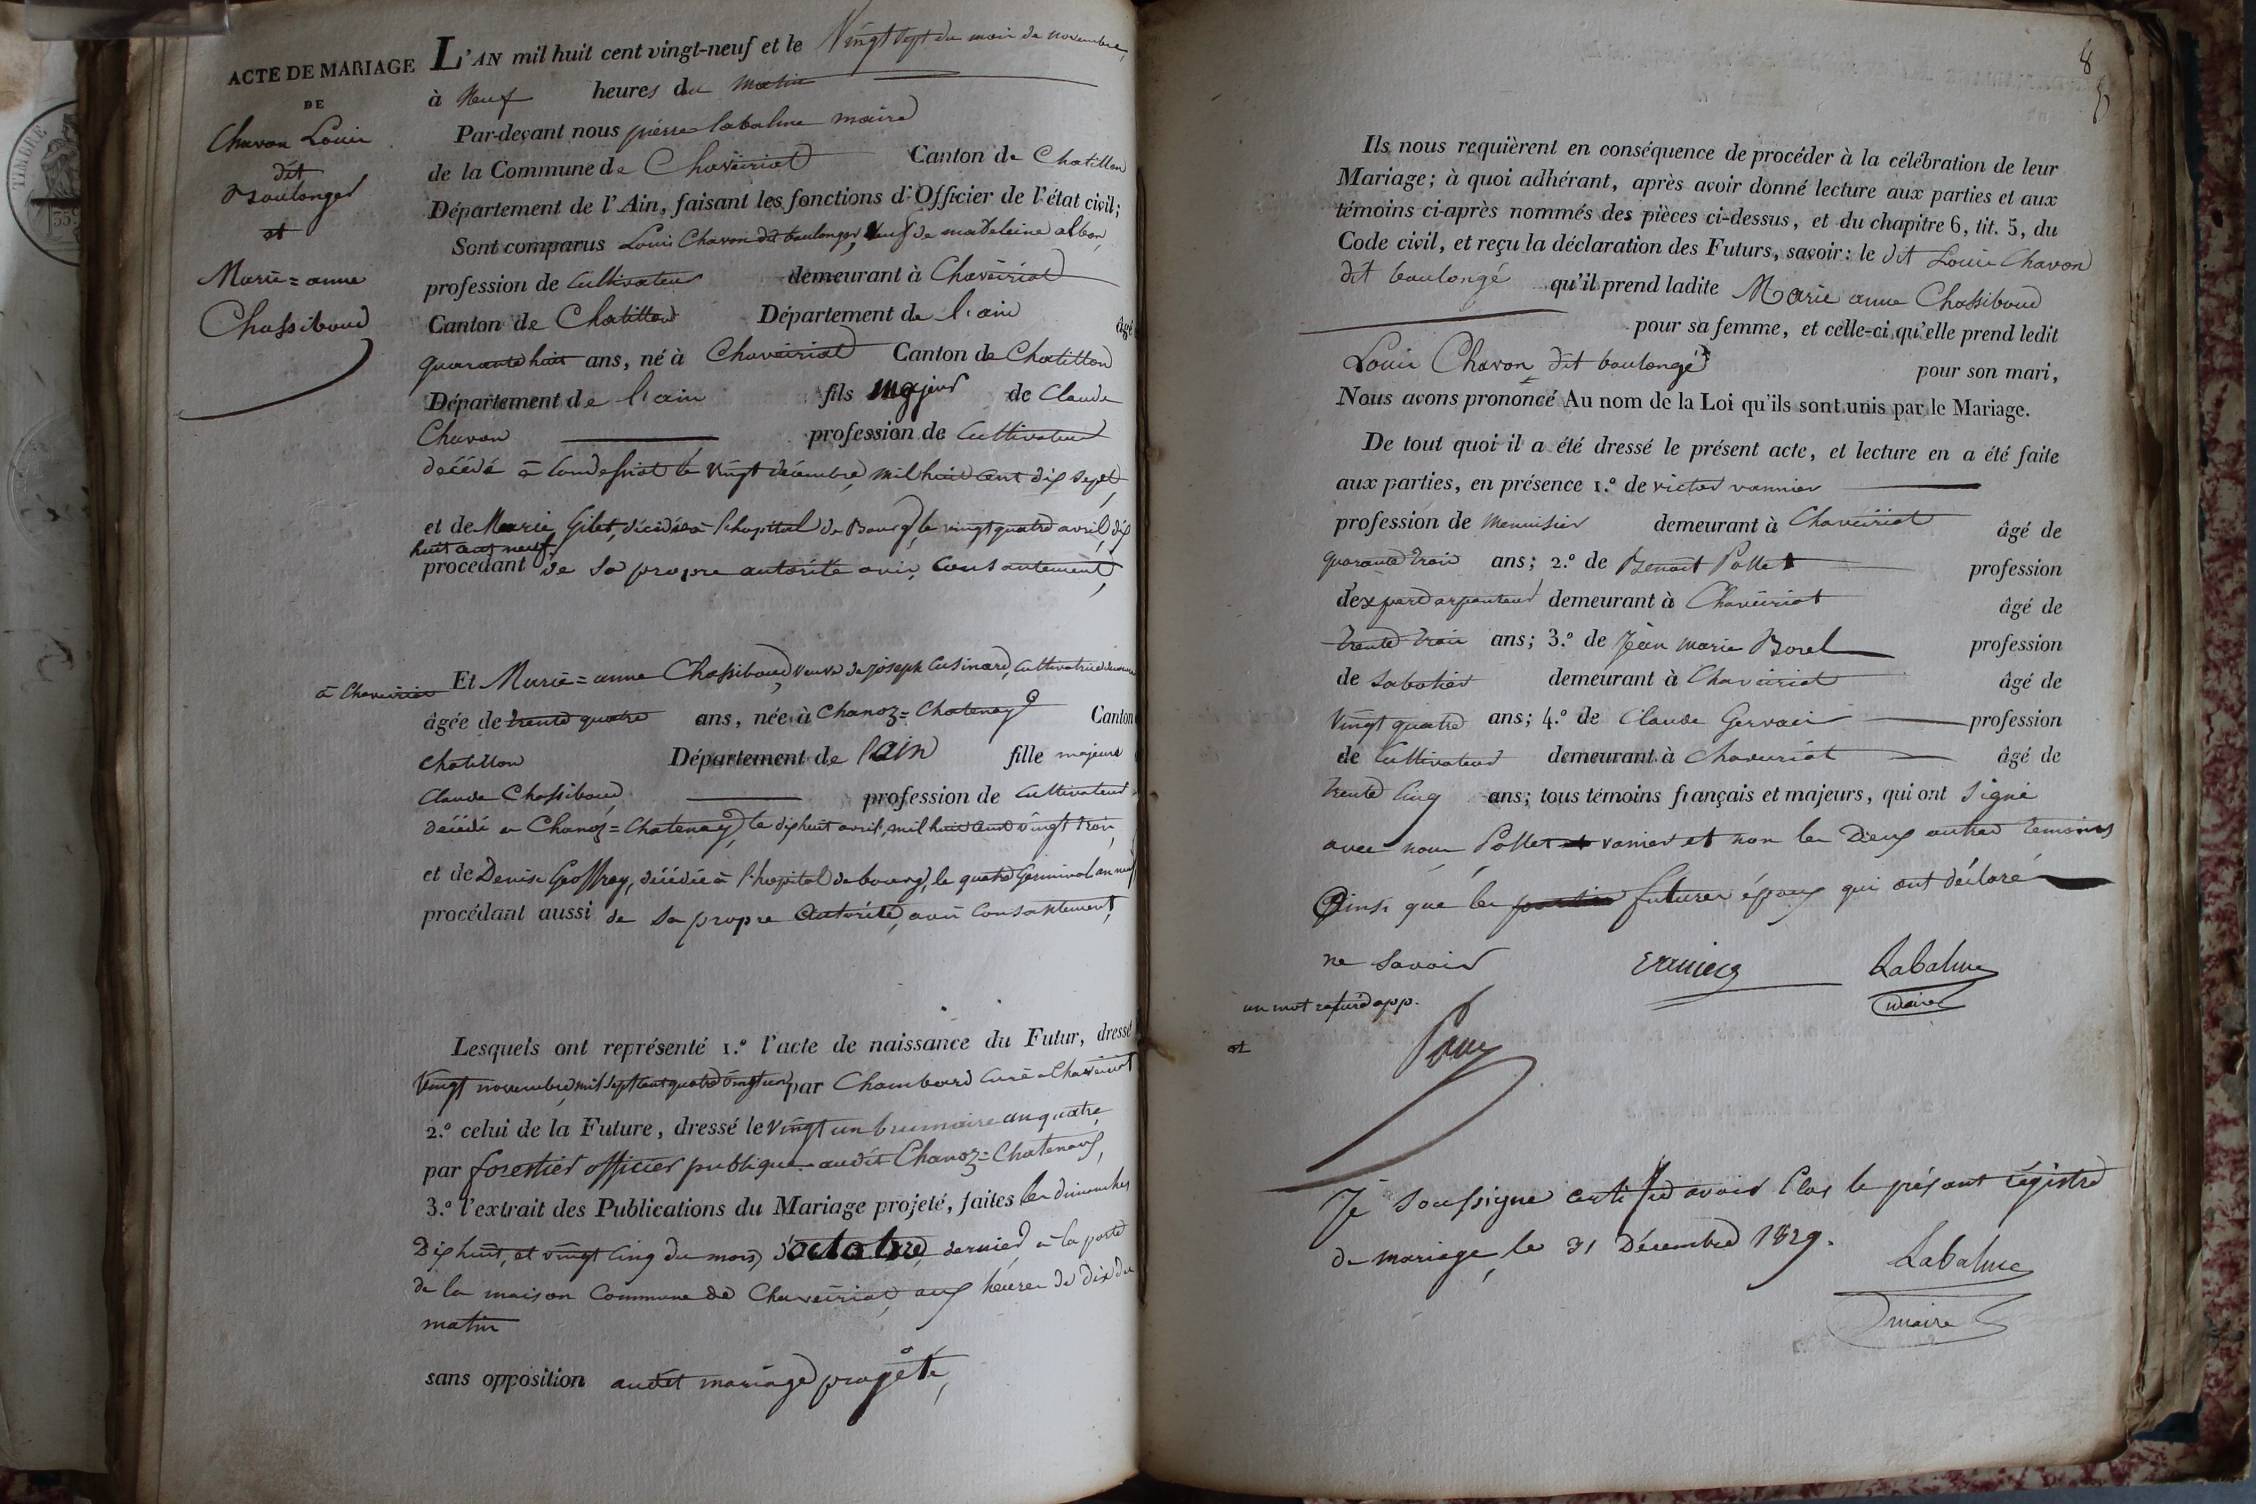 ACTE DE MARIAGE
DE
Chavon Louis
dit
Boulonger
et
Marie=anne
Chassiboud
L'AN mil huit cent vingt-neuf et le Vingt sept du mois de novembre,
à Neuf heures du matin
Par-devant nous pierre labalme maire
de la Commune de Chaveiriat Canton de Chatillon
Département de l'Ain, faisant les fonctions d'Officier de l'état civil;
Sont comparus Louis Chavon dit boulonger, veuf de madeleine albon,
profession de Cultivateur demeurant à Chaveiriat
Canton de Chatillon Département de l'ain âgé
quarante huit ans, né à Chaveiriat Canton de Chatillon
Département de l'ain fils majeur de Claude
Chavon profession de Cultivateur
décédé à Condessiat le vingt décembre, mil huit cent dix sept,
et de Marie Gilet, décédée à l'hopital de Bourg, le vingt quatre avril, dix
huit cent neuf
procédant de sa propre autorité avis, Consantement,
Et Marie=anne Chassiboud, veuve de joseph Cusinard, Cultivatrice
à Chaveiriat
âgée de trente quatre ans, née à Chanoz=Chatenay Canton
Chatillon Département de l'ain fille majeure
Claude Chassiboud, profession de Cultivateur
décédé à Chanoz=Chatenay, le dix huit avril, mil huit cent vingt trois,
et de Denise Geoffray, décédée à l'hopital de bourg, le quatre Germinal an neuf
procédant aussi de sa propre autorité, avis Consantement,
Lesquels ont représenté 1.º l'acte de naissance du Futur, dressé
Vingt novembre, mil sept cent quatre vingt un, par Chambard Curé à Chaveiriat
2.º celui de la Future, dressé le vingt un brumaire an quatre,
par forestier officier publique audit Chanoz=Chatenay,
3.º l'extrait des Publications du Mariage projeté, faites les dimanches
Dix huit, et vingt cinq du mois, d'octobre, dernier, à la porte
de la maison Commune de Chaveiriat, aux heures de dix du
matin
sans opposition audit mariage projété,
8
Ils nous requièrent en conséquence de procéder à la célébration de leur
Mariage; à quoi adhérant, après avoir donné lecture aux parties et aux
témoins ci-après nommés des pièces ci-dessus, et du chapitre 6, tit. 5, du
Code civil, et reçu la déclaration des Futurs, savoir: le dit Louis Chavon
dit boulongé qu'il prend ladite Marie anne Chassiboud
pour sa femme, et celle-ci qu'elle prend ledit
Louis Chavon dit boulongé pour son mari,
Nous avons prononcé Au nom de la Loi qu'ils sont unis par le Mariage.
De tout quoi il a été dressé le présent acte, et lecture en a été faite
aux parties, en présence 1.º de victor vannier
profession de menuisier demeurant à Chaveiriat âgé de
quarante trois ans; 2.º de Benoit Pollet profession
d'expert arpenteur demeurant à Chaveiriat âgé de
trente trois ans; 3.º de Jean marie Borel profession
de sabotier demeurant à Chaveiriat âgé de
vingt quatre ans; 4.º de Claude Gervais profession
de Cultivateur demeurant à Chaveiriat âgé de
trente Cinq ans; tous témoins français et majeurs, qui ont signé
avec nous Pollet et vanier et non les Deux autres temoins
Ainsi que les futures époux qui ont déclaré
ne savoir
Labalme
maire
un mot rasuré app.
et
Je soussigné certifie avoir Clos le présant régistre
de mariage, le 31 Décembre 1829.
Labalme
maire
TIMBRE